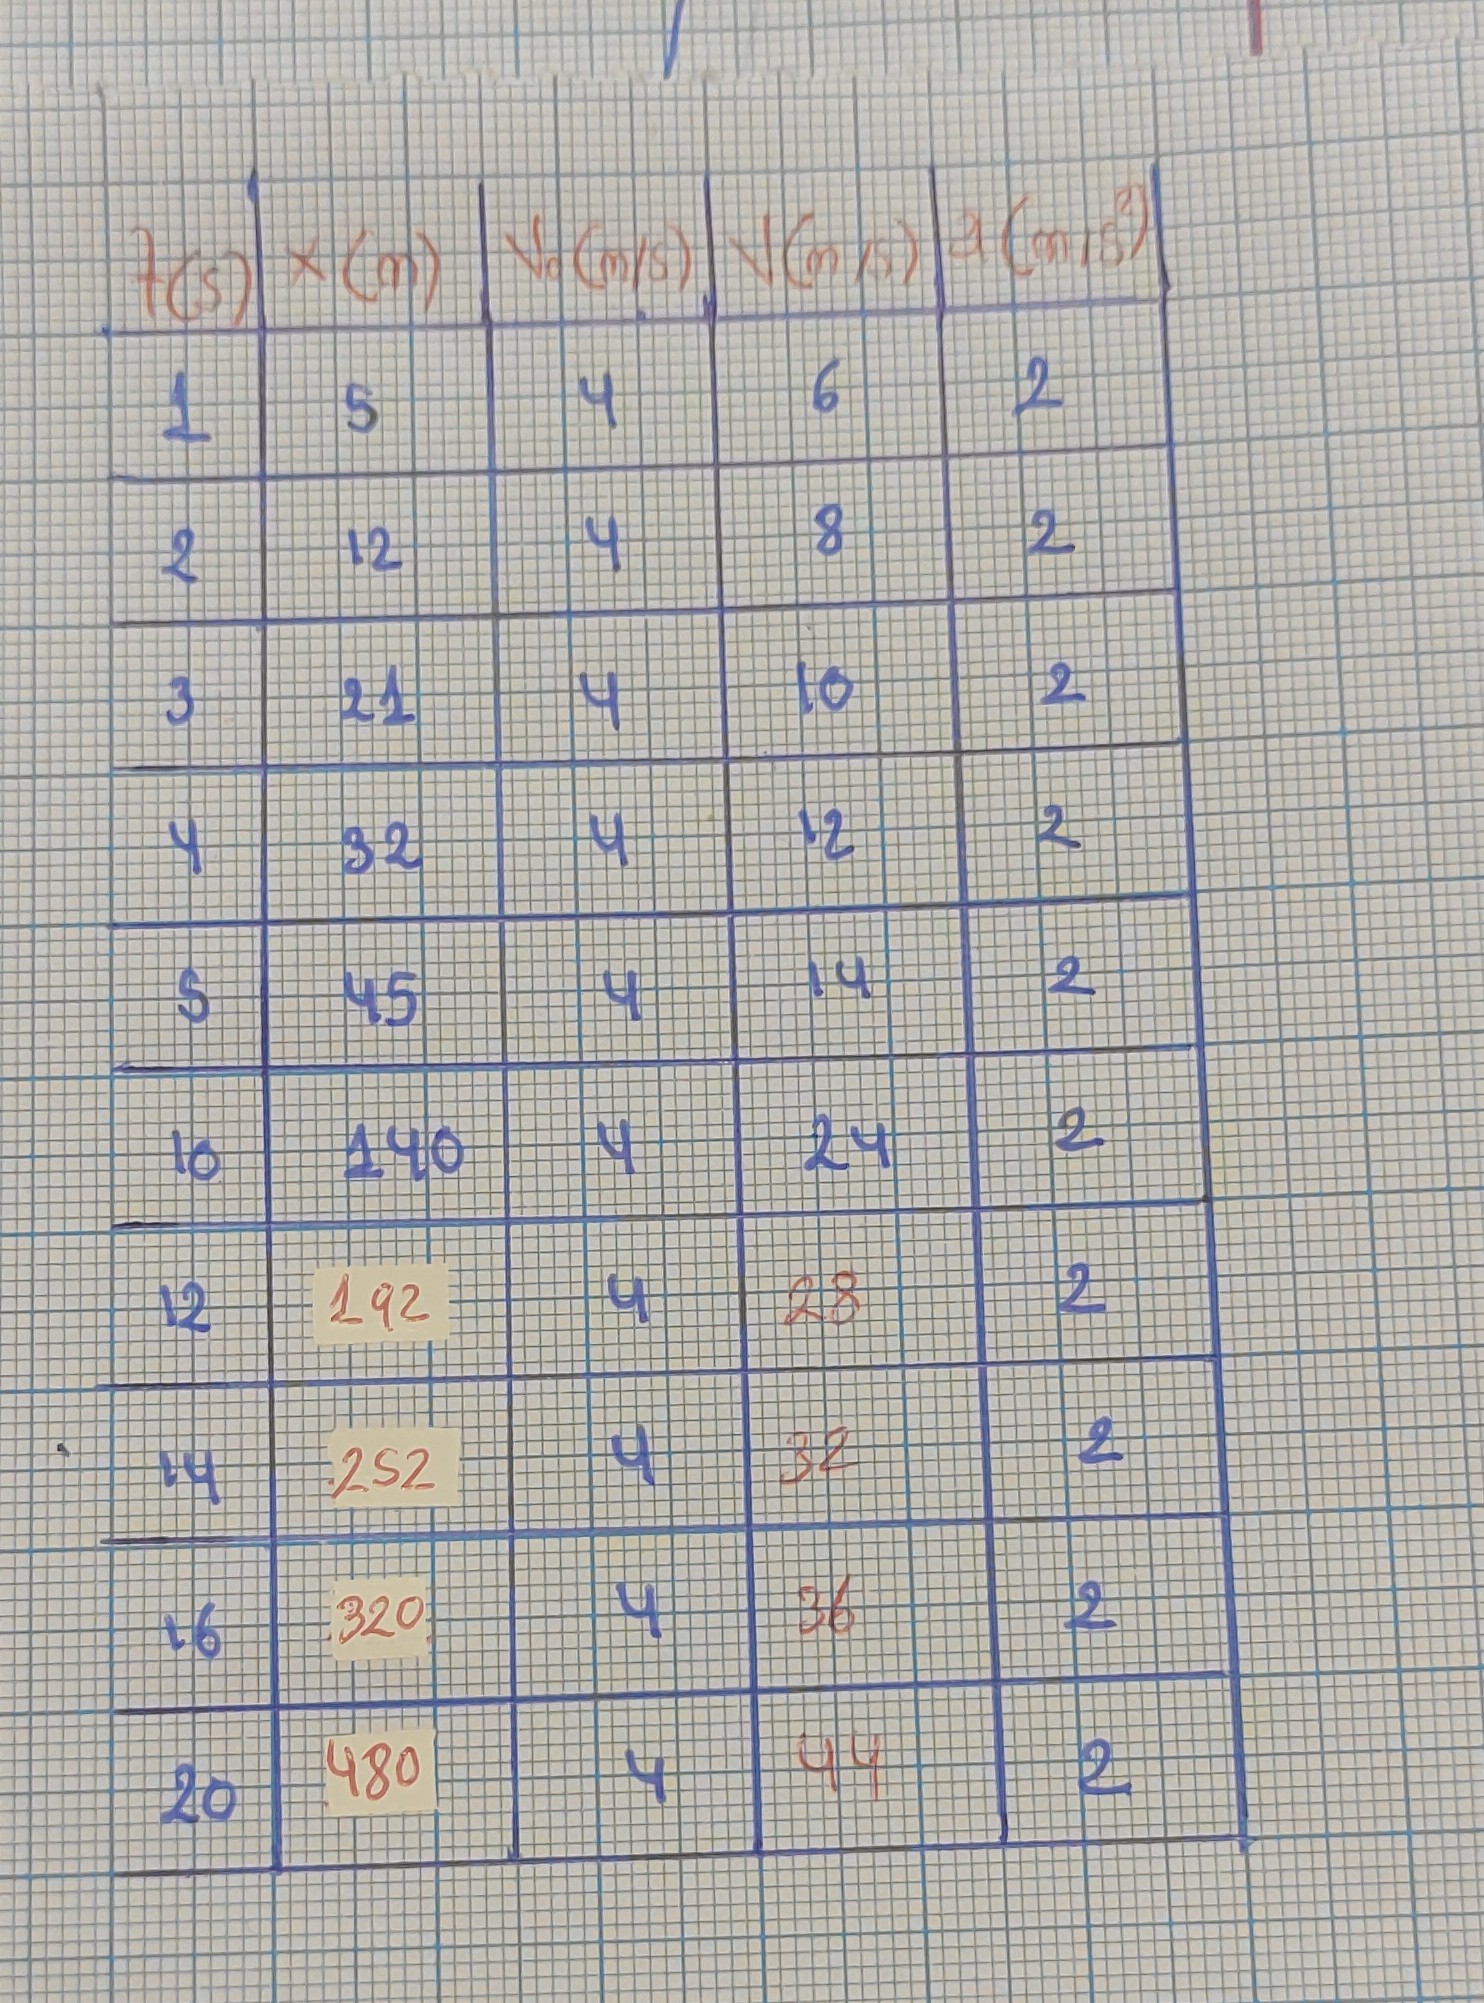 t(s) x(m) V₀(m/s) V(m/s) a(m/s²)
1 5 4 6 2
2 12 4 8 2
3 21 4 10 2
4 32 4 12 2
5 45 4 14 2
10 140 4 24 2
12 192 4 28 2
14 252 4 32 2
16 320 4 36 2
20 480 4 44 2